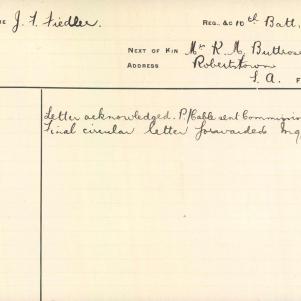 ME J. F. Fiedler. REG. &C 10th Batt.
NEXT OF KIN Mr K. M. Buttrose
ADDRESS Robertstown
S. A. F
Letter acknowledged. P/Cable sent Commission
Final circular letter forwarded